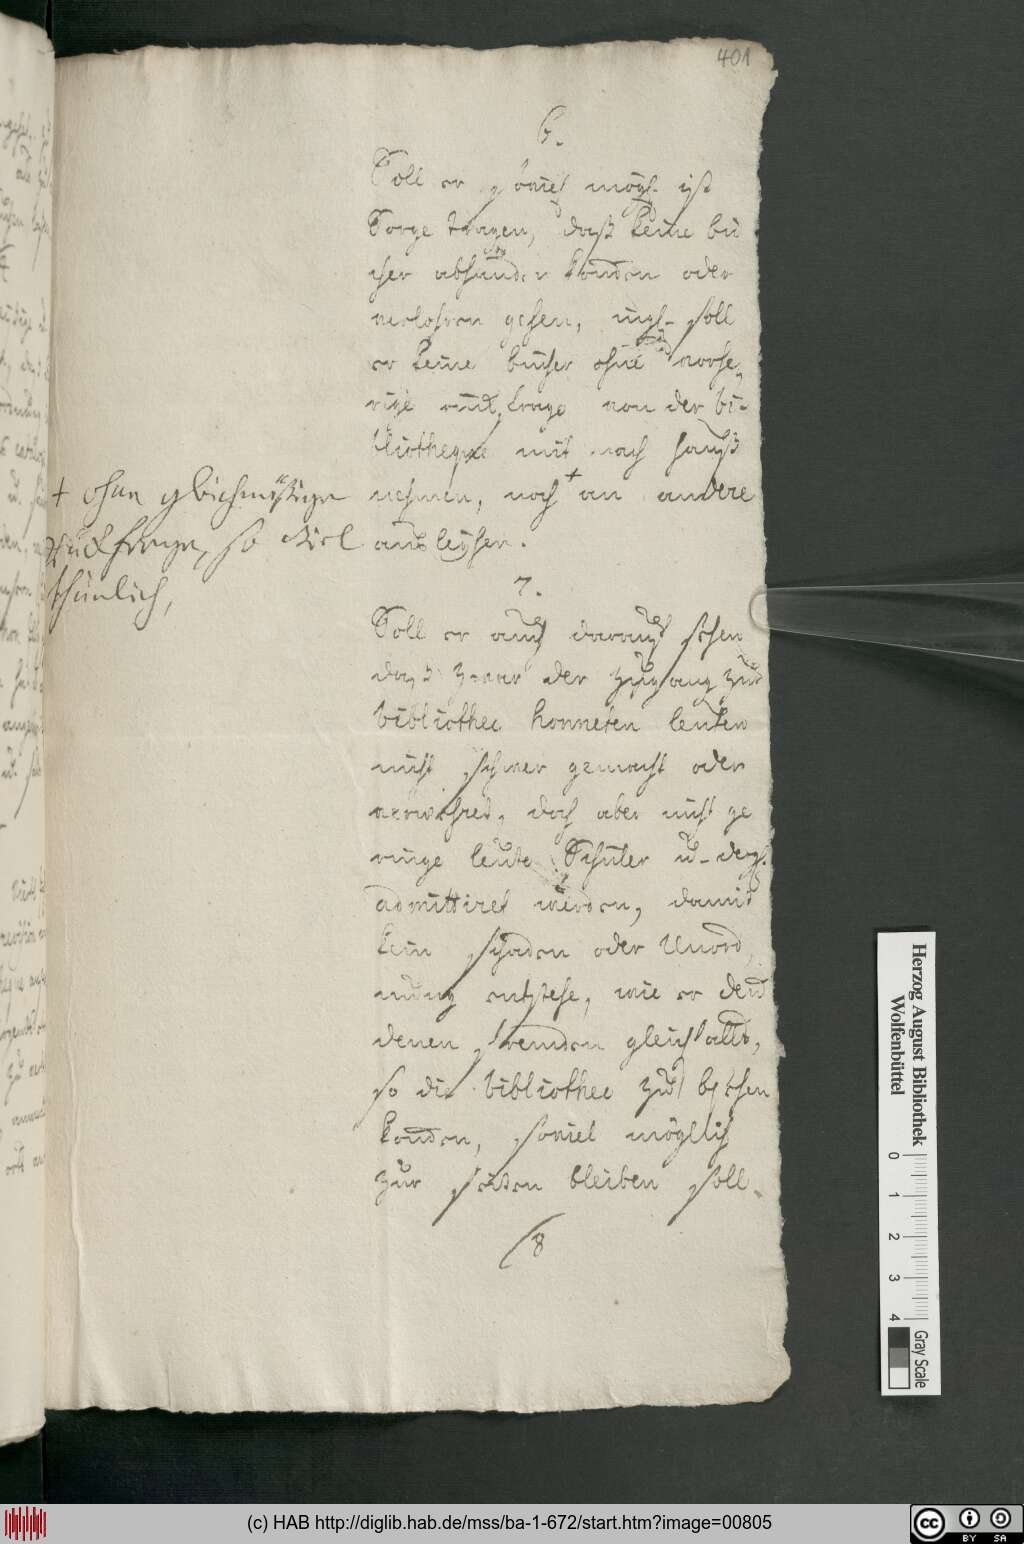 401
6.
Soll er soviel mögl. ist
Sorge tragen, daß keine bü
cher abhanden kom̄en oder
verlohren gehen, insh. soll
er keine bücher ohne vorhe
rige rückfrage von der bi-
bliotheque mit nach hauß
nehmen, noch + an andere
ausleyhen.
+ ohne gleichmäßige
rückfrage, so viel
thünlich,
7.
Soll er auch darauf sehen
daß zwar der zugang zur
bibliothec honneten leuten
nicht schwer gemacht oder
verwehret, doch aber nicht ge
ringe leute Schüler u. dergl.
admittiret werden, damit
kein schaden oder Unord
nung entstehe, wie er den
denen fremden gleichfalls,
so die bibliothec zu besehen
kom̄en, soviel möglich
zur seiten bleiben soll.
8
Herzog August Bibliothek
Wolfenbüttel
0 1 2 3 4
Gray Scale
(c) HAB http://diglib.hab.de/mss/ba-1-672/start.htm?image=00805
cc BY SA